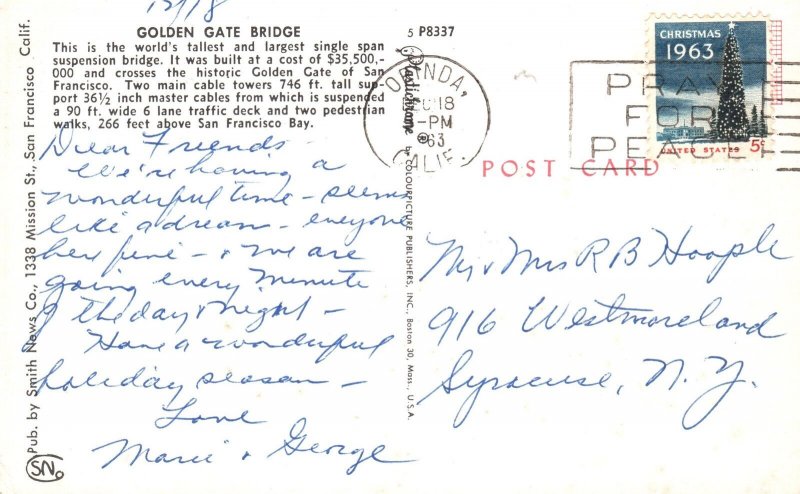 12/18
GOLDEN GATE BRIDGE
This is the world's tallest and largest single span
suspension bridge. It was built at a cost of $35,500,-
000 and crosses the historic Golden Gate of San
Francisco. Two main cable towers 746 ft. tall sup-
port 36½ inch master cables from which is suspended
a 90 ft. wide 6 lane traffic deck and two pedestrian
walks, 266 feet above San Francisco Bay.
Dear Friends -
We're having a
wonderful time - seems
like a dream - everyone
here fine - & we are
going every minute
of the day & night -
Have a wonderful
holiday season -
Love
Marie & George
Pub. by Smith News Co., 1338 Mission St., San Francisco Calif.
SN
5 P8337
Plastichrome ® by COLOURPICTURE PUBLISHERS, INC., Boston 30, Mass., U.S.A.
ORINDA,
18
-PM
63
CALIF.
PRAY
FOR
PEACE
CHRISTMAS
1963
UNITED STATES 5c
POST CARD
Mr & Mrs R B Hoople
916 Westmoreland
Syracuse, N. Y.